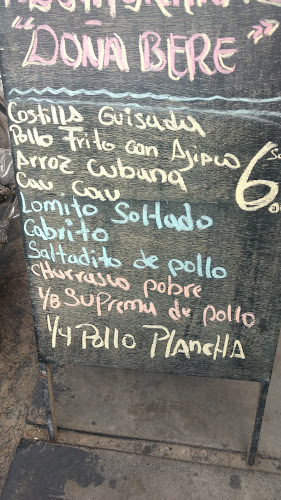 "DOÑA BERE"
Costilla Guisada
Pollo Frito con Ajiaco
Arroz cubana
Cau Cau
6.00
Lomito Soltado
Cabrito
Saltadito de pollo
CHurrasco pobre
1/8 Suprema de pollo
1/4 Pollo PlancHA